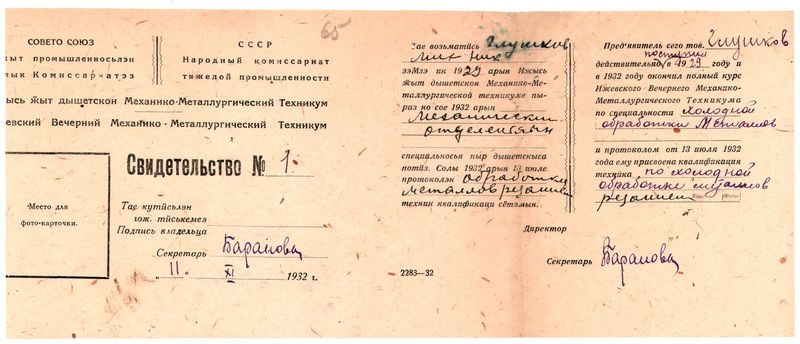 65
СОВЕТО СОЮЗ
кыт промышленносьлэн
лык Комиссариатэз
СССР
Народный комиссариат
тяжелой промышленности
ысь ӝыт дышетскон Механико-Металлургический Техникум
евский Вечерний Механико-Металлургический Техникум
Свидетельство № 1.
Место для
фото-карточки.
Тае кутӥсьлэн
гож. тӥськемез
Подпись владельца
Секретарь Баранова
„ 11 " XI 1932 г.
Тае возьматӥсь Глушков
Мих Ник
зэмзэ ик 1929 арын Ижысь
ӝыт дышетскон Механико-Ме-
таллургической техникуме пы-
раз но сое 1932 арын
Механический
отделентыын
специальносья пыр дышетскыса
потӥз. Солы 1932 арын 13 июле
протоколэн обработки
металлов резанием
техник квалификаци сётэмын.
2283—32
Пред'явитель сего тов. Глушков
поступил
действительно в 1929 году и
в 1932 году окончил полный курс
Ижевского Вечернего Механико-
Металлургического Техникума
по специальности холодной
обработки металлов
и протоколом от 13 июля 1932
года ему присвоена квалификация
техника по холодной
обработке металлов
резанием
Директор
Секретарь Баранова